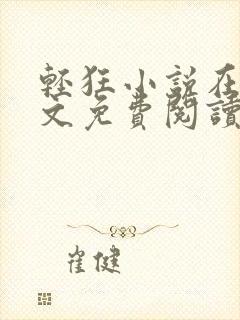 輕狂小說在
文免費閱讀
崔健